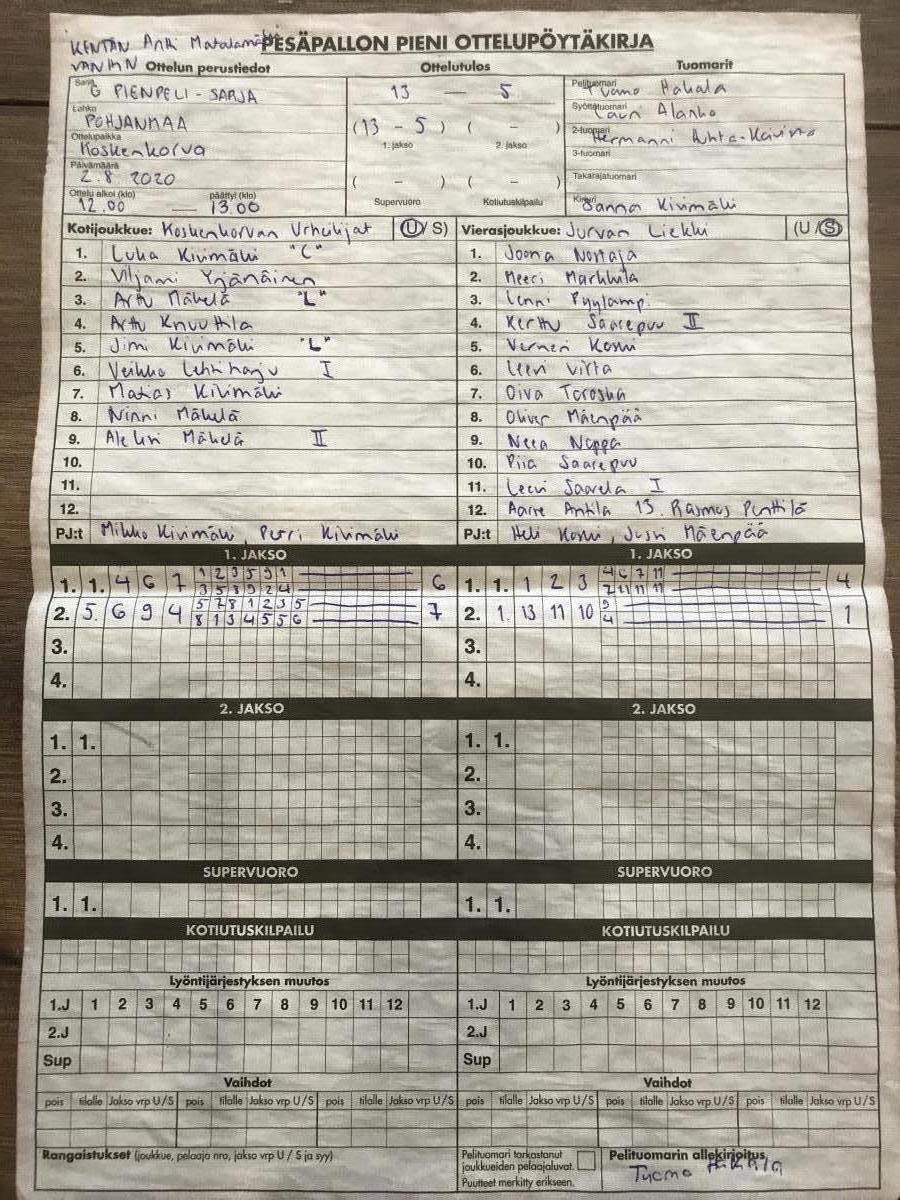 KENTÄN Antti Matalamäki PESÄPALLON PIENI OTTELUPÖYTÄKIRJA
VANHIN Ottelun perustiedot Ottelutulos Tuomarit
Sarja G PIENPELI - SARJA 13 — 5 Pelituomari Tuomo Hakala
Lohko POHJANMAA (13 - 5) ( - ) Syöttötuomari Lauri Alanko
Ottelupaikka Koskenkorva 1. jakso 2. jakso 2-tuomari Hermanni
Päivämäärä 2.8 2020 3-tuomari
( - ) ( - ) Takarajatuomari
Ottelu alkoi (klo) 12.00 — päättyi (klo) 13.00 Supervuoro Kotiutuskilpailu Kirjuri Sanna Kivimäki
Kotijoukkue: Koskenkorvan Urheilijat (U/S) Vierasjoukkue: Jurvan Liekki (U/S)
1. Luka Kivimäki "C" 1. Joona Nortaja
2. Viljami Yrjänäinen 2. Meeri Markkila
3. Arttu Mäkelä "L" 3. Lenni Pyylampi
4. Arttu Knuuttila 4. Kerttu Saarepuu II
5. Jimi Kivimäki "L" 5. Verneri Koski
6. Veikko Lehtiharju I 6. Leevi Virta
7. Matias Kivimäki 7. Oiva Toroska
8. Ninni Mäkelä 8. Oliver Mäenpää
9. Aleksi Mäkelä II 9. Neea Nappa
10. 10. Piia Saarepuu
11. 11. Leevi Saarela I
12. 12. Aarre Antila 13. Rasmus Penttilä
PJ:t Mikko Kivimäki, Petri Kivimäki PJ:t Heli Koski, Jussi Mäenpää
1. JAKSO 1. JAKSO
1. 1. 4 6 7 1 2 3 5 9 1 6 1. 1. 1 2 3 4 6 7 11 4
3 5 8 9 2 4 7 11 11 11
2. 5. 6 9 4 5 7 8 1 2 3 5 7 2. 1. 13 11 10 9 1
8 1 3 4 5 5 6 4
3. 3.
4. 4.
2. JAKSO 2. JAKSO
1. 1. 1. 1.
2. 2.
3. 3.
4. 4.
SUPERVUORO SUPERVUORO
1. 1. 1. 1.
KOTIUTUSKILPAILU KOTIUTUSKILPAILU
Lyöntijärjestyksen muutos Lyöntijärjestyksen muutos
1.J 1 2 3 4 5 6 7 8 9 10 11 12 1.J 1 2 3 4 5 6 7 8 9 10 11 12
2.J 2.J
Sup Sup
Vaihdot Vaihdot
pois tilalle Jakso vrp U/S pois tilalle Jakso vrp U/S pois tilalle Jakso vrp U/S pois tilalle Jakso vrp U/S pois tilalle Jakso vrp U/S pois tilalle Jakso vrp U/S
Rangaistukset (joukkue, pelaaja nro, jakso vrp U / S ja syy) Pelituomari tarkastanut Pelituomarin allekirjoitus
joukkueiden pelaajaluvat. Tuomo Hakala
Puutteet merkitty erikseen.